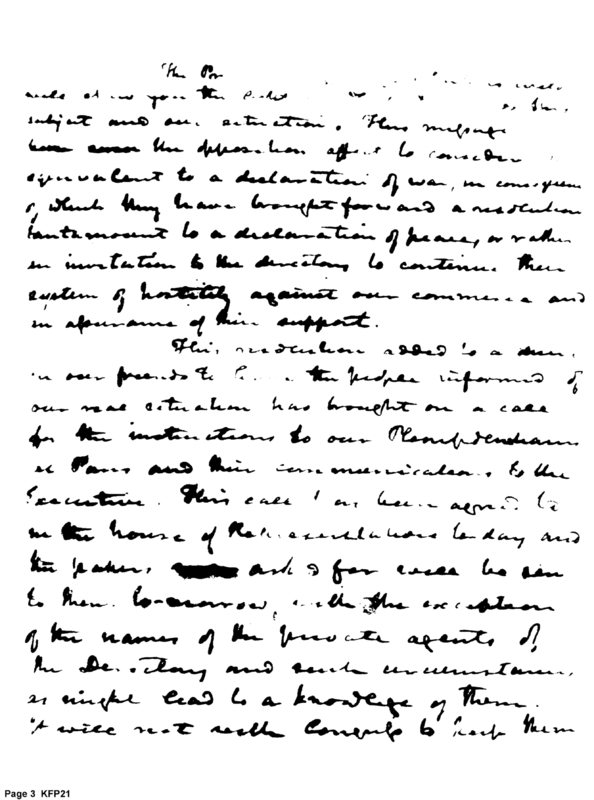 The Pr
will show you the
subject and our situation. This message
the opposition affect to consider
equivalent to a declaration of war, in consequence
of which they have brought forward a resolution
tantamount to a declaration of peace, or rather
an invitation to the directory to continue their
system of hostility against our commerce and
an assurance of their support.
This resolution added to a
in our friends to the people informed of
our real situation has brought on a call
for the instructions to our Plenipotentiaries
at Paris and their communications to the
Executive. This call has been agreed to
in the house of Representatives to day and
the papers asked for will be sen
to them to-morrow, with the exception
of the names of the private agents of
the Directory and such circumstances
as might lead to a knowledge of them.
It will rest with Congress to keep them
Page 3 KFP21